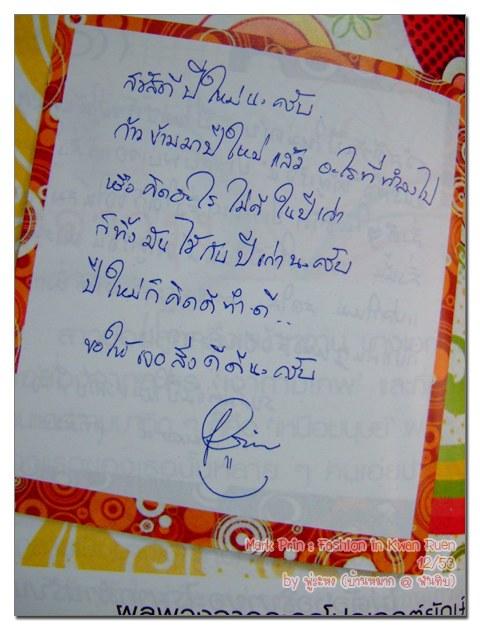 สวัสดีปีใหม่นะครับ
ก้าวข้ามมาปีใหม่แล้ว อะไรที่ทำลงไป
หรือคิดอะไรไม่ดีในปีเก่า
ก็ทิ้งมันไว้กับปีเก่านะครับ
ปีใหม่ก็คิดดีทำดี..
ขอให้เจอสิ่งดีดีนะครับ
Prin
Mark Prin : Fashion in Kwan Ruen
12/56
by พู่ระหง (บ้านหมาก @ พันทิป)